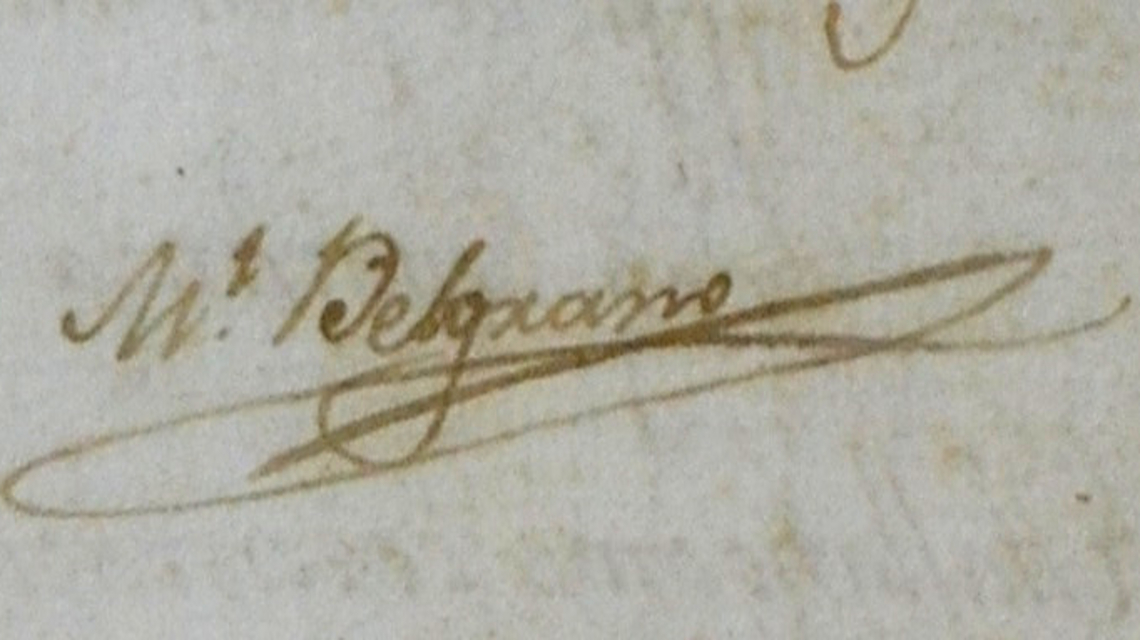 M.l Belgrano